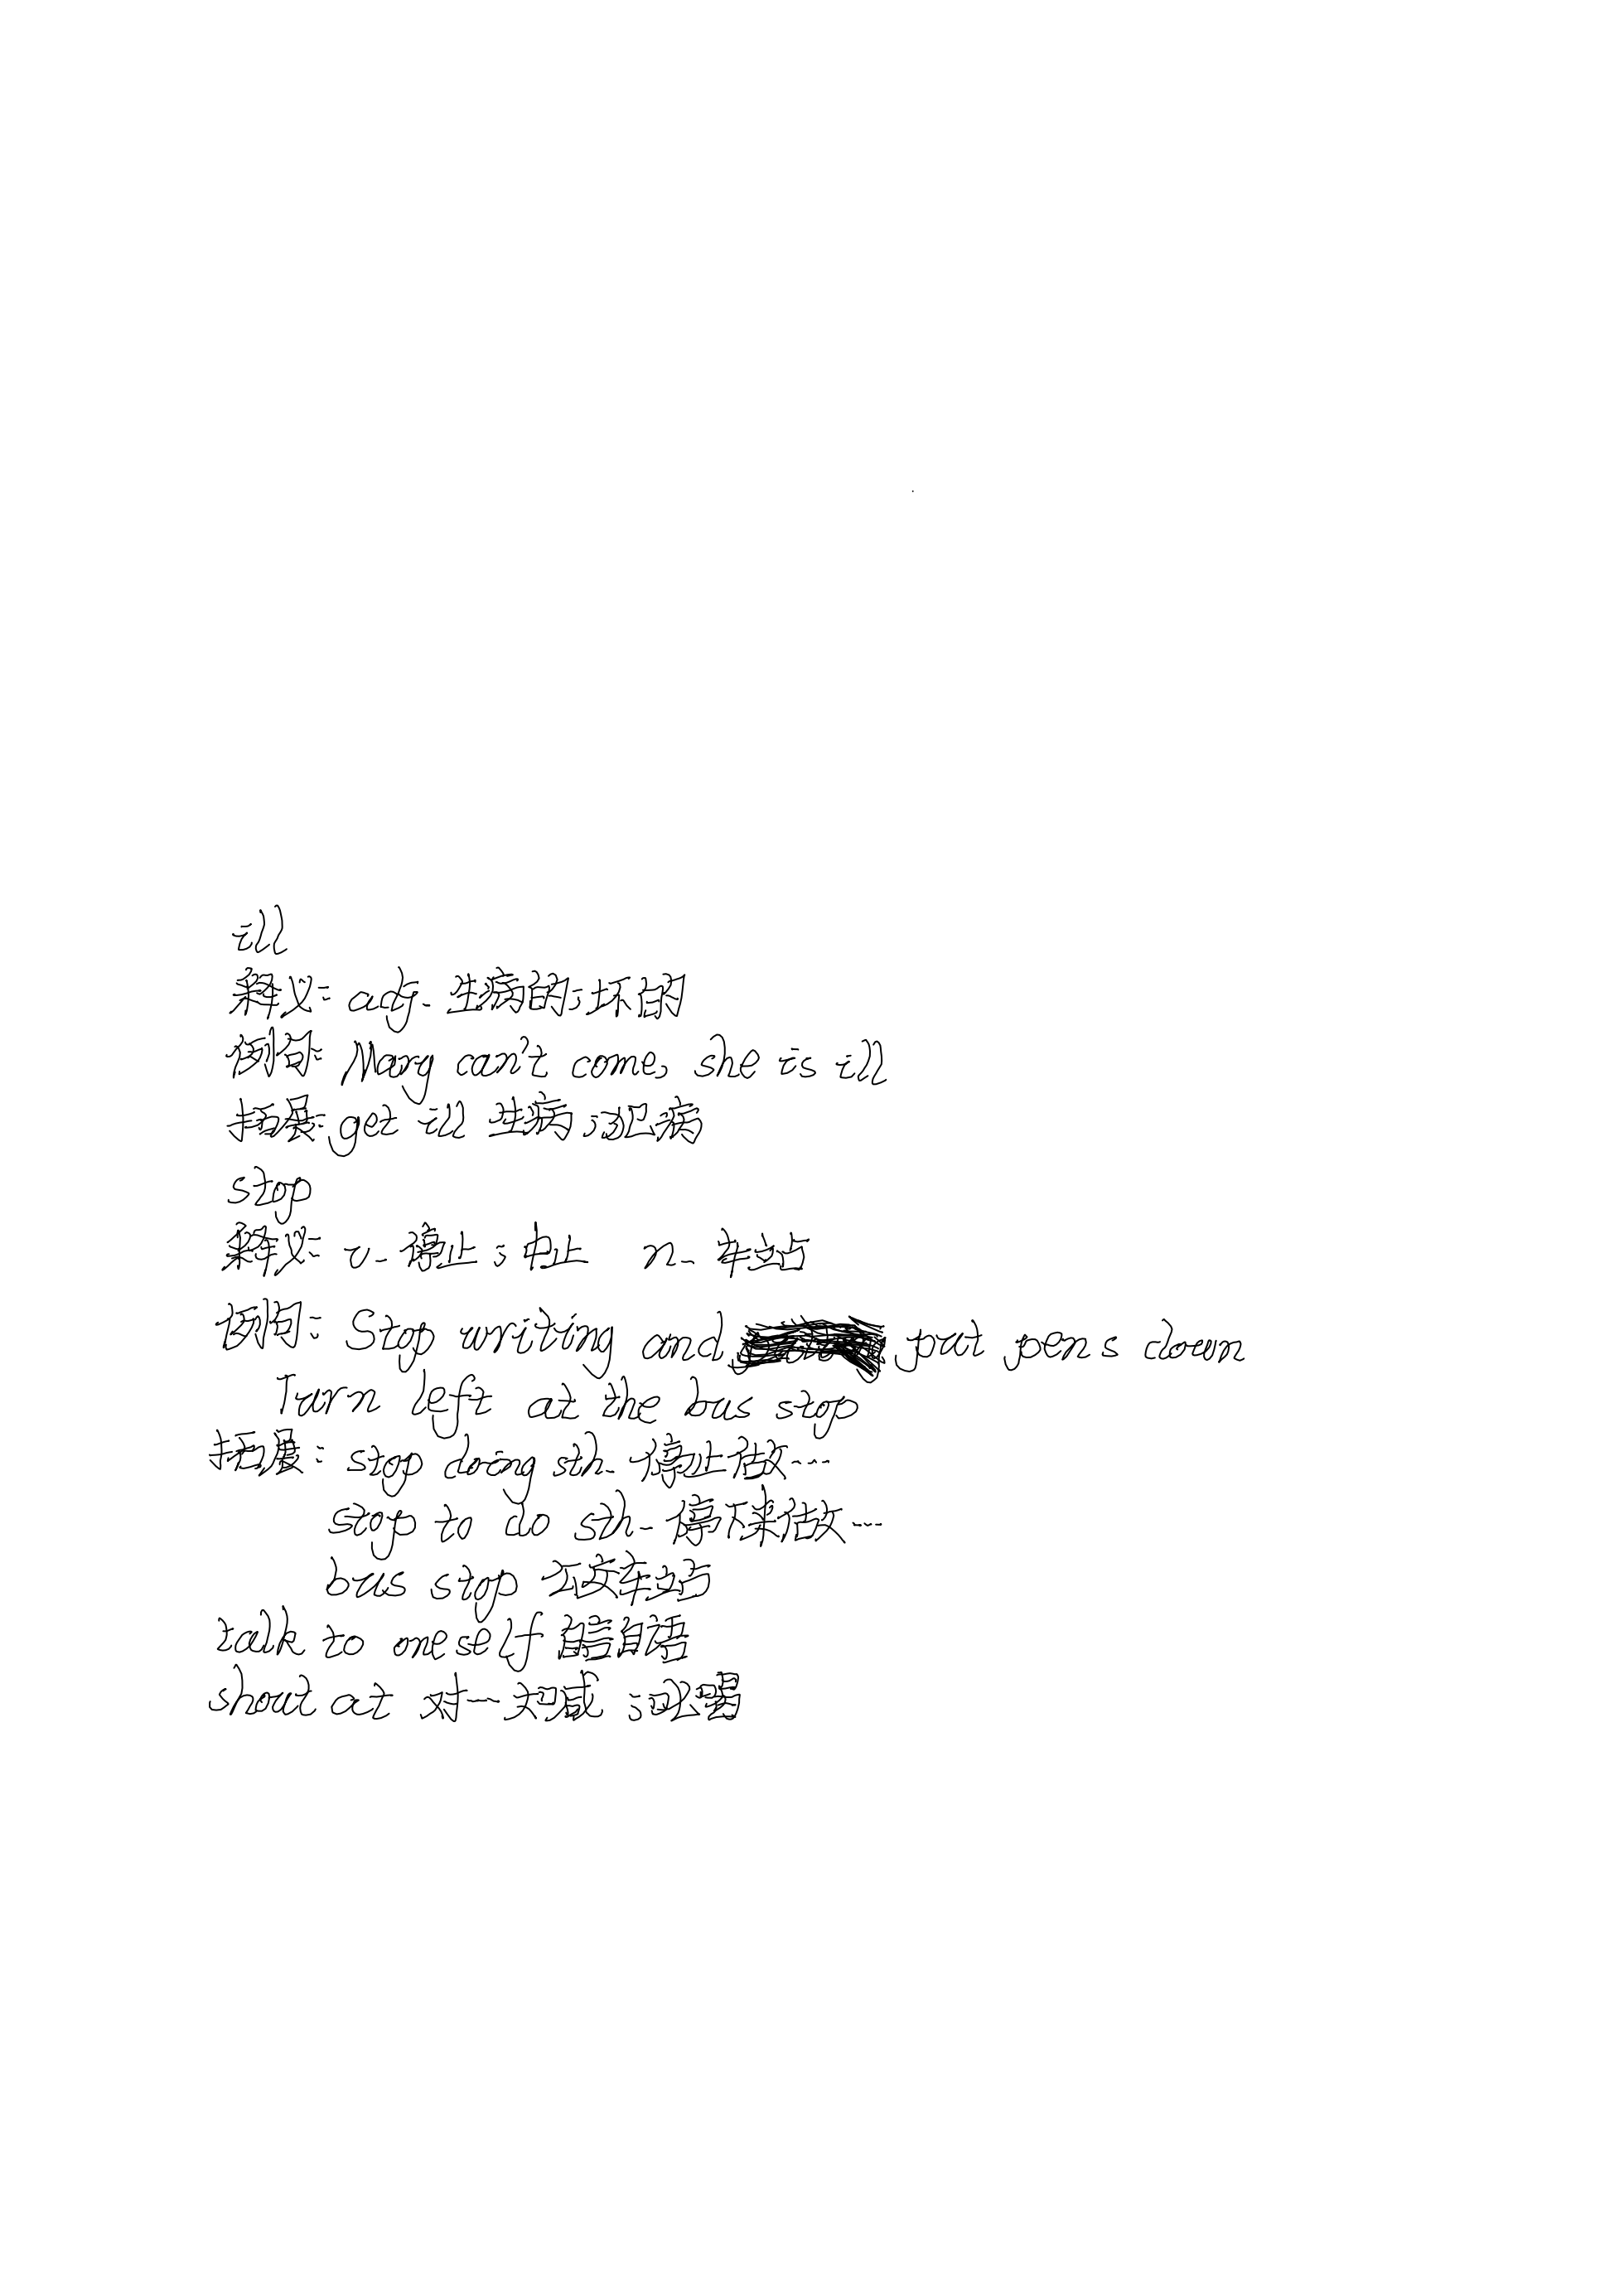 ill
释义: adj. 生病的;坏的
例句: Mary can't come, she is ill
拓展: get ill 生病;犯病
stop
释义: v. 停止;中止 n. 车站
例句: Stop writing and put pens down
Turn left at the bus stop
拓展: stop doing sth. 停止做…
stop to do sth. 停下来做…
bus stop 公交车站
talk to oneself 自言自语
shout at 对…大喊;吆喝